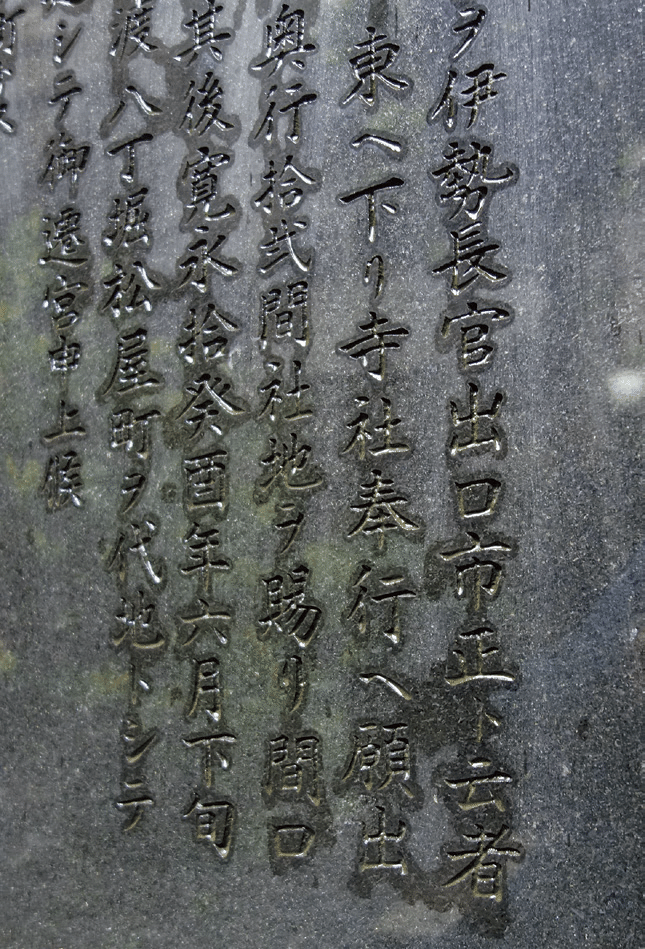 ヲ伊勢長官出口市正ト云者
東ヘ下リ寺社奉行ヘ願出
奥行拾弐間社地ヲ賜リ間口
其後寛永拾癸酉年六月下旬
渡八丁堀松屋町ヲ代地トシテ
シテ御遷宮申上候